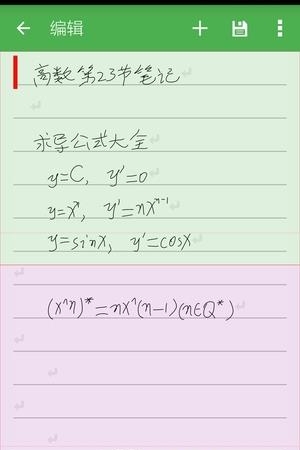 编辑
高数第23节笔记
求导公式大全
y=C, y'=0
y=xⁿ, y'=nxⁿ⁻¹
y=sinx, y'=cosx
(x^n)*=nx^(n-1)(n∈Q*)